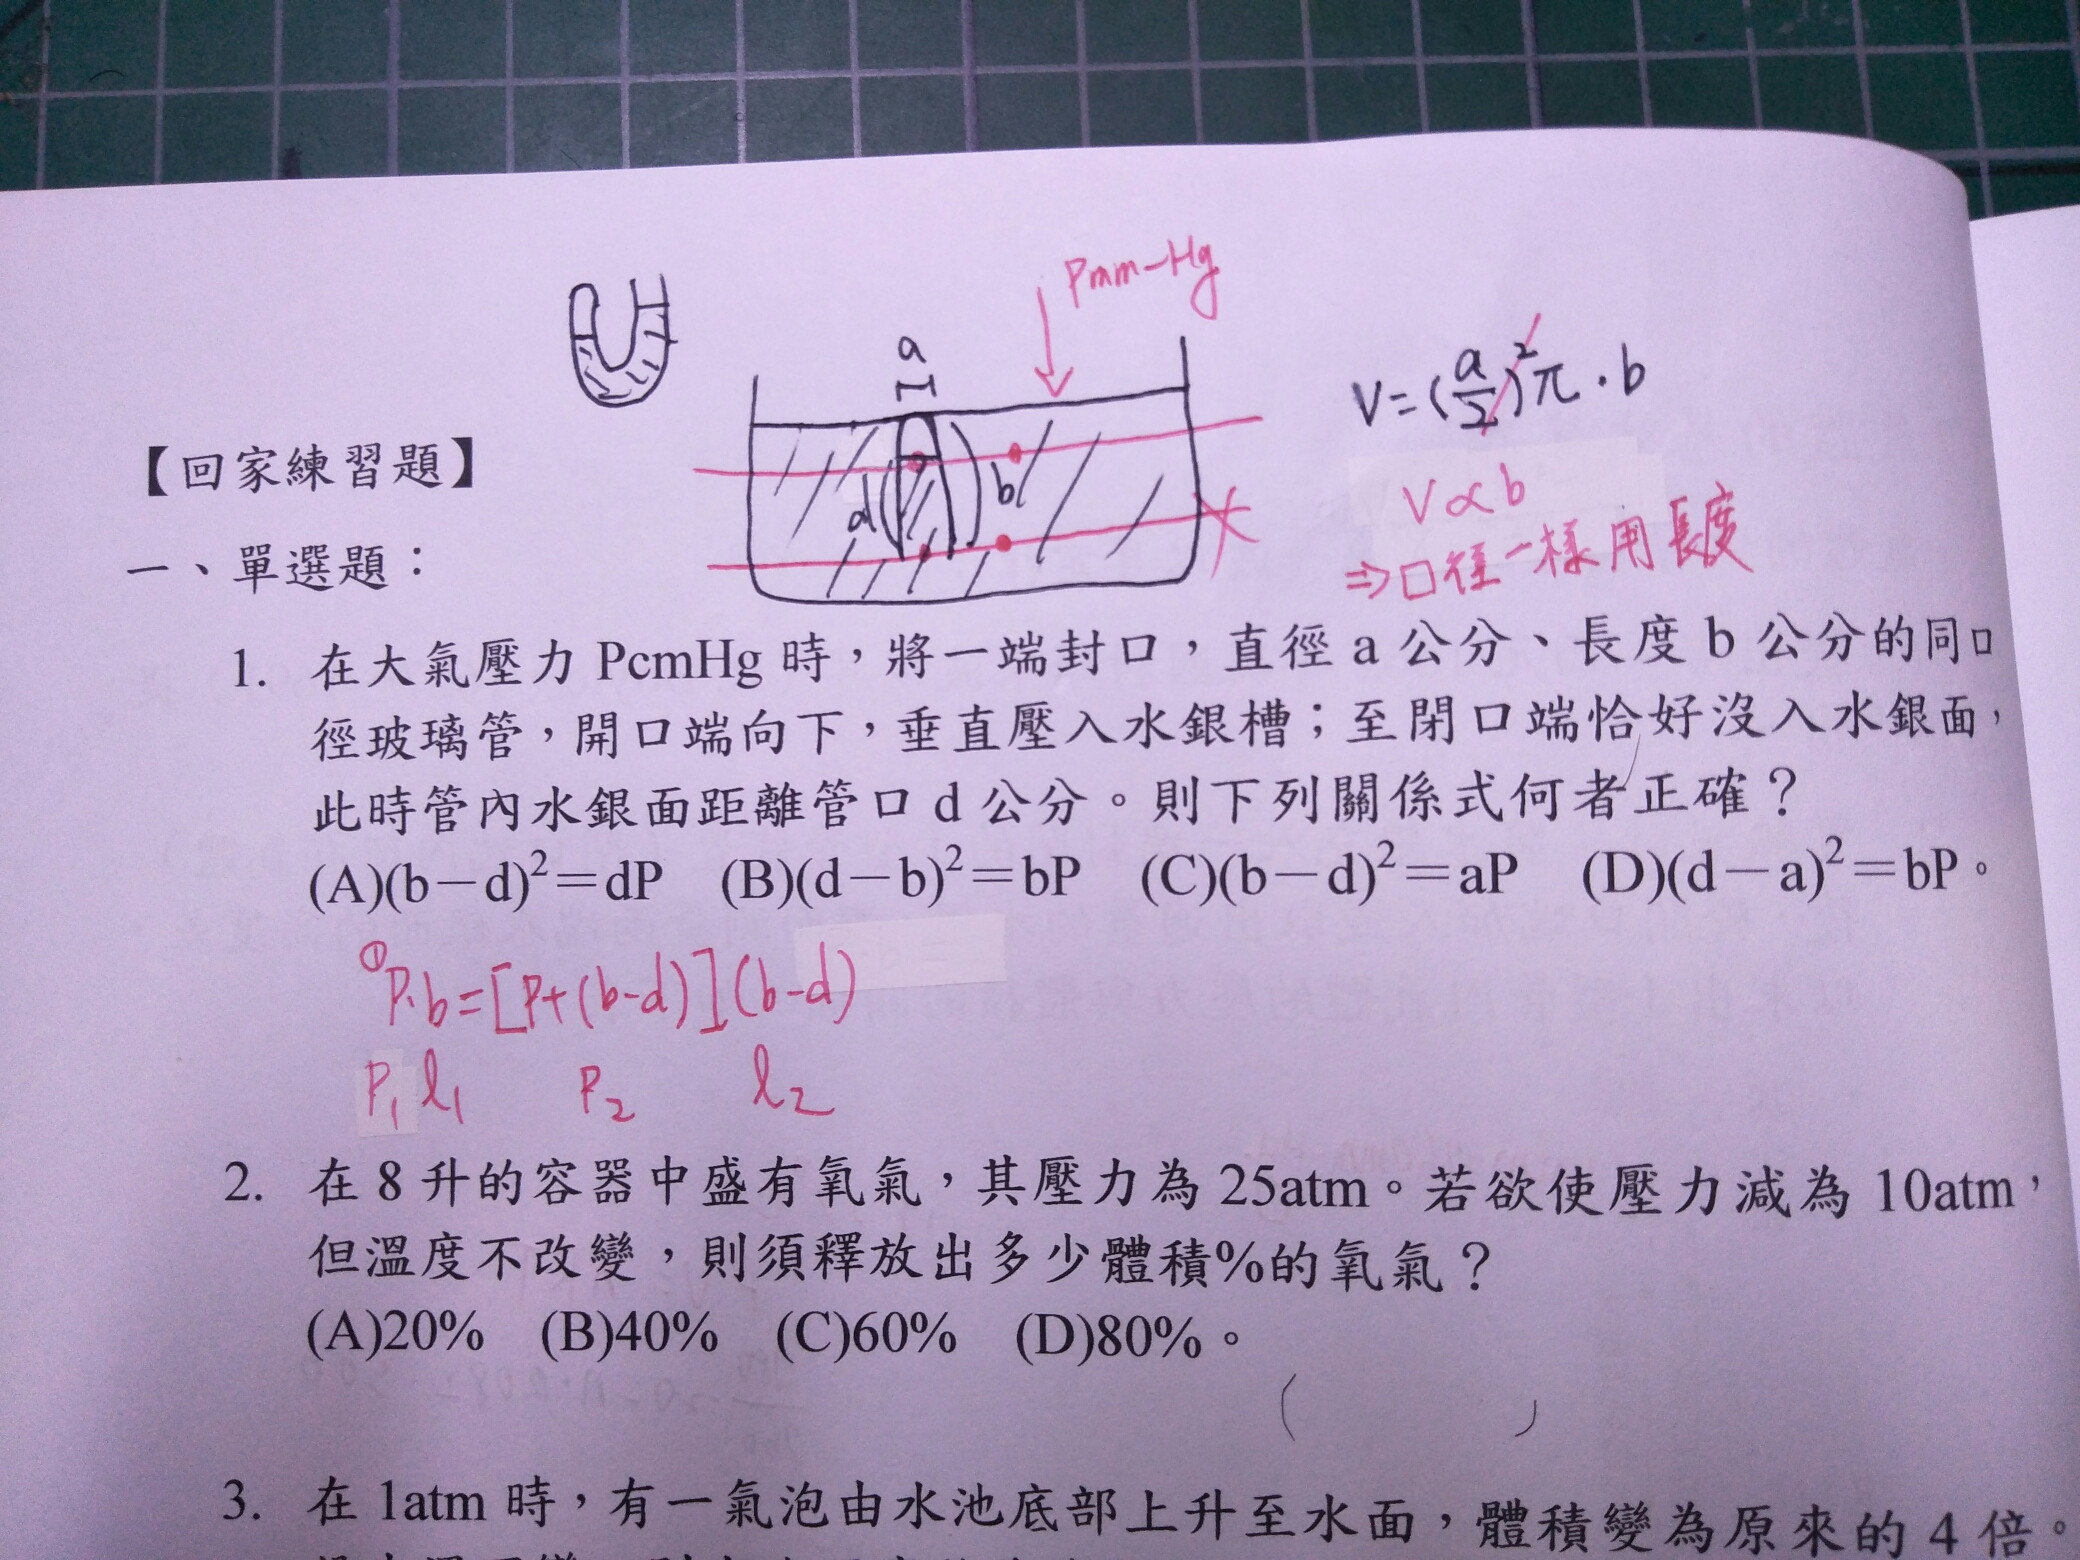 Pmm-Hg
a
d
b
V=(a/2)²π·b
V∝b
⇒口徑一樣用長度
【回家練習題】
一、單選題：
1. 在大氣壓力 PcmHg 時，將一端封口，直徑 a 公分、長度 b 公分的同口
徑玻璃管，開口端向下，垂直壓入水銀槽；至閉口端恰好沒入水銀面，
此時管內水銀面距離管口 d 公分。則下列關係式何者正確？
(A)(b－d)²＝dP (B)(d－b)²＝bP (C)(b－d)²＝aP (D)(d－a)²＝bP。
①P·b=[P+(b-d)](b-d)
P₁ l₁ P₂ l₂
2. 在 8 升的容器中盛有氧氣，其壓力為 25atm。若欲使壓力減為 10atm，
但溫度不改變，則須釋放出多少體積%的氧氣？
(A)20% (B)40% (C)60% (D)80%。
( )
3. 在 1atm 時，有一氣泡由水池底部上升至水面，體積變為原來的 4 倍。